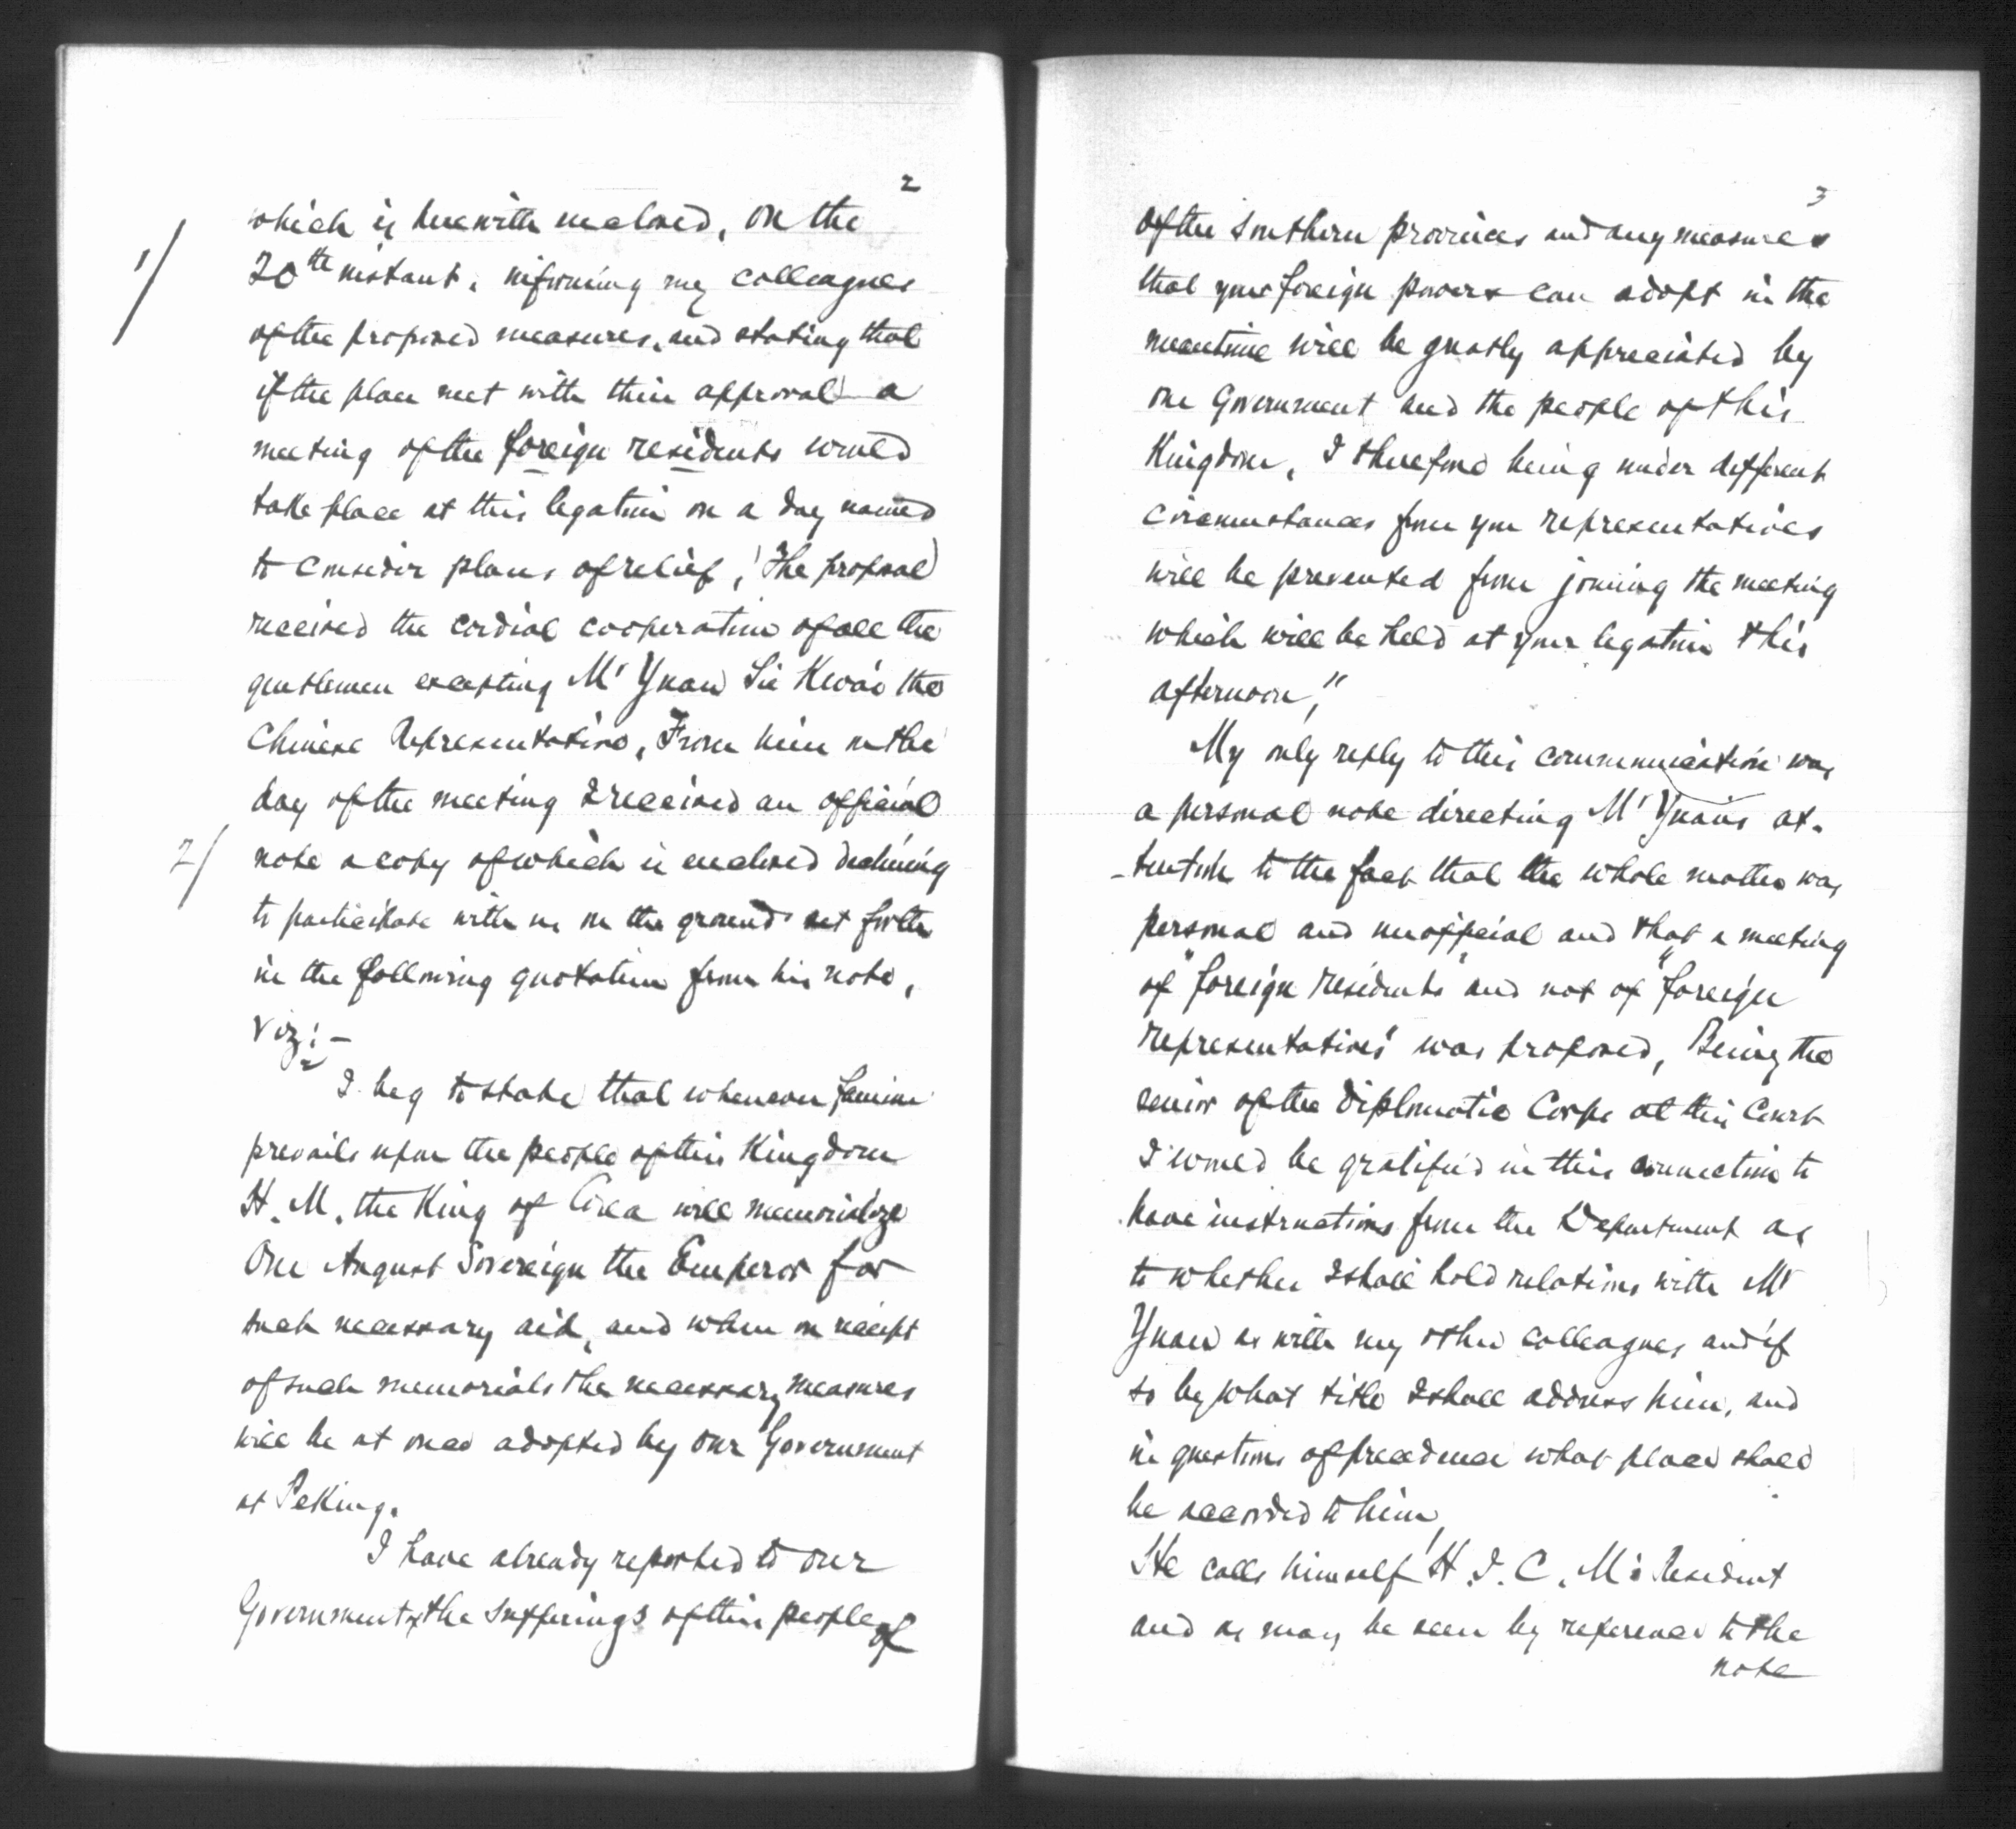 2
which is herewith inclosed, on the
1/
20th instant, informing my colleagues
of the proposed measures, and stating that
if the plan met with their approval a
meeting of the foreign residents would
take place at this legation on a day named
to consider plans of relief, The proposal
received the cordial cooperation of all the
gentlemen excepting Mr Yuan Sie Kwai the
Chinese Representative, From him on the
day of the meeting I received an official
2/
note a copy of which is enclosed declining
to participate with us on the grounds set forth
in the following quotation from his note,
viz: -
I beg to state that whenever famine
prevails upon the people of this Kingdom
H. M. the King of Corea will memorialize
Our August Sovereign the Emperor for
such necessary aid, and when on receipt
of such memorials the necessary measures
will be at once adopted by our Government
at Peking.
I have already reported to our
Government, the sufferings of this people of
3
of the southern provinces and any measures
that your foreign powers can adopt in the
meantime will be greatly appreciated by
our Government and the people of this
Kingdom, I therefore being under different
circumstances from you representatives
will be prevented from joining the meeting
which will be held at your legation this
afternoon,"
My only reply to this communication was
a personal note directing Mr Yuan's at-
-tention to the fact that the whole matter was
personal and unofficial and that a meeting
of "foreign residents" and not of "foreign
representatives" was proposed, Being the
senior of the Diplomatic Corps at this Court
I would be gratified in this connection to
have instructions from the Department as
to whether I shall hold relations with Mr
Yuan as with my other colleagues and if
so by what title I shall address him, and
in questions of precedence what place shall
be accorded to him,
He calls himself H. I. C. M's Resident
and as may be seen by reference to the
note